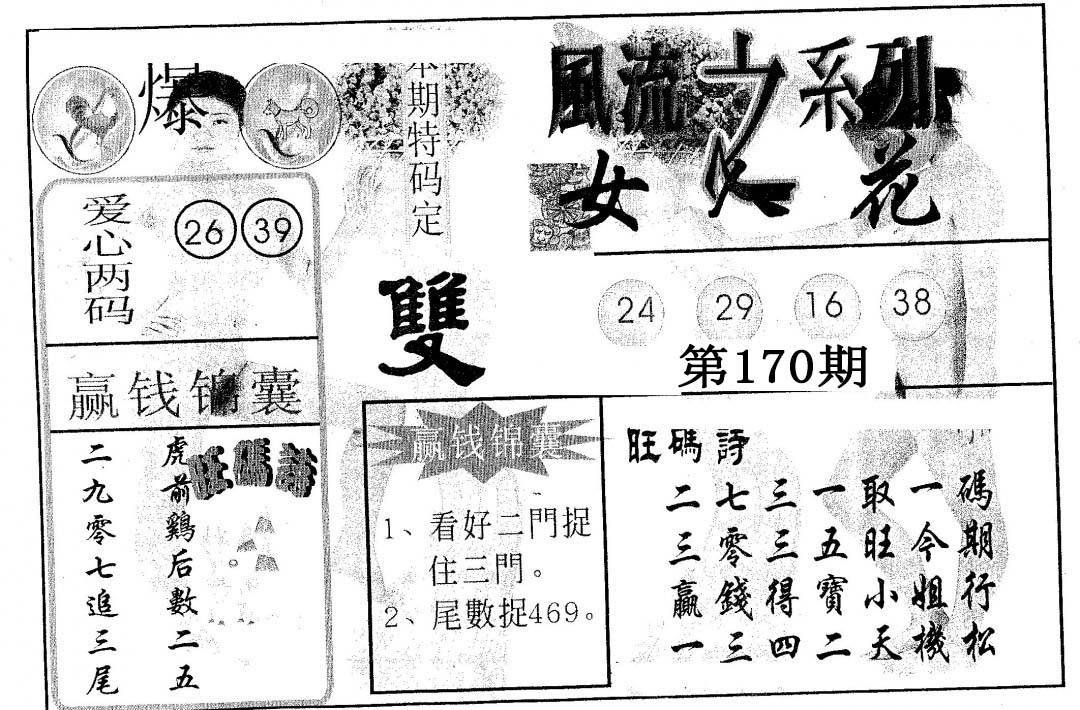 風流之系列
女人花
爆
本期特码定
雙
爱心两码
26 39
24 29 16 38
第170期
赢钱锦囊
旺碼詩
虎前鷄后數二五
二九零七追三尾
赢钱锦囊
1、看好二門捉
住三門。
2、尾數捉469。
旺碼詩
碼期行松
一今姐機
取旺小天
一五寶二
三三得四
七零錢三
二三贏一